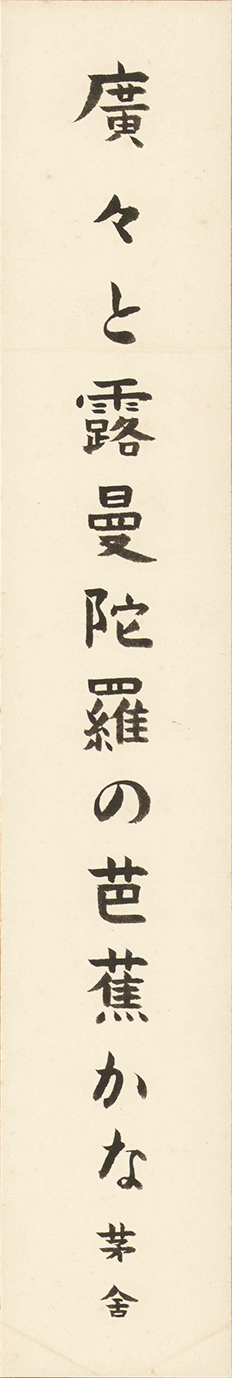 廣々と露曼陀羅の芭蕉かな 茅舎